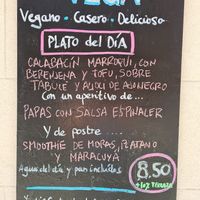 VEGA
Vegano · Casero · Delicioso
PLATO del DÍA
CALABACÍN MARROQUI, CON
BERENJENA Y TOFU, SOBRE
TABULÉ Y ALIOLI DE AJONEGRO
Con un aperitivo de...
PAPAS CON SALSA ESPINALER
Y de postre .....
SMOOTHIE DE MORAS, PLATANO
Y MARACUYÁ
Agua del día y pan incluidos
8,50
+10% TERRAZA